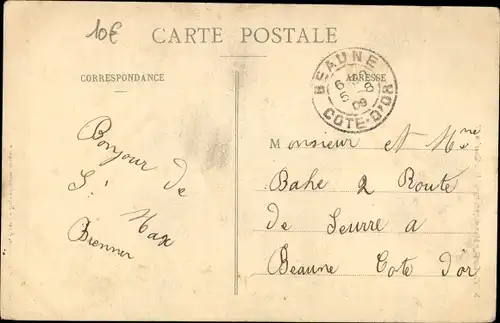 10€
CARTE POSTALE
CORRESPONDANCE
ADRESSE
BEAUNE
6
6 - 8
09
COTE-D'OR
Bonjour de
S!
Max
Brenner
Monsieur et Mme
Bahe 2 Route
de Seurre a
Beaune Cote d'or